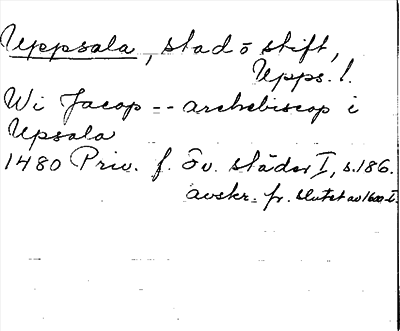 Uppsala, stad o stift,
Upps. l.
Wi Jacop -- archebiscop i
Upsala
1480 Priv. f. Öv. städer I, s. 186.
avskr. fr. slutet av 1600-t.